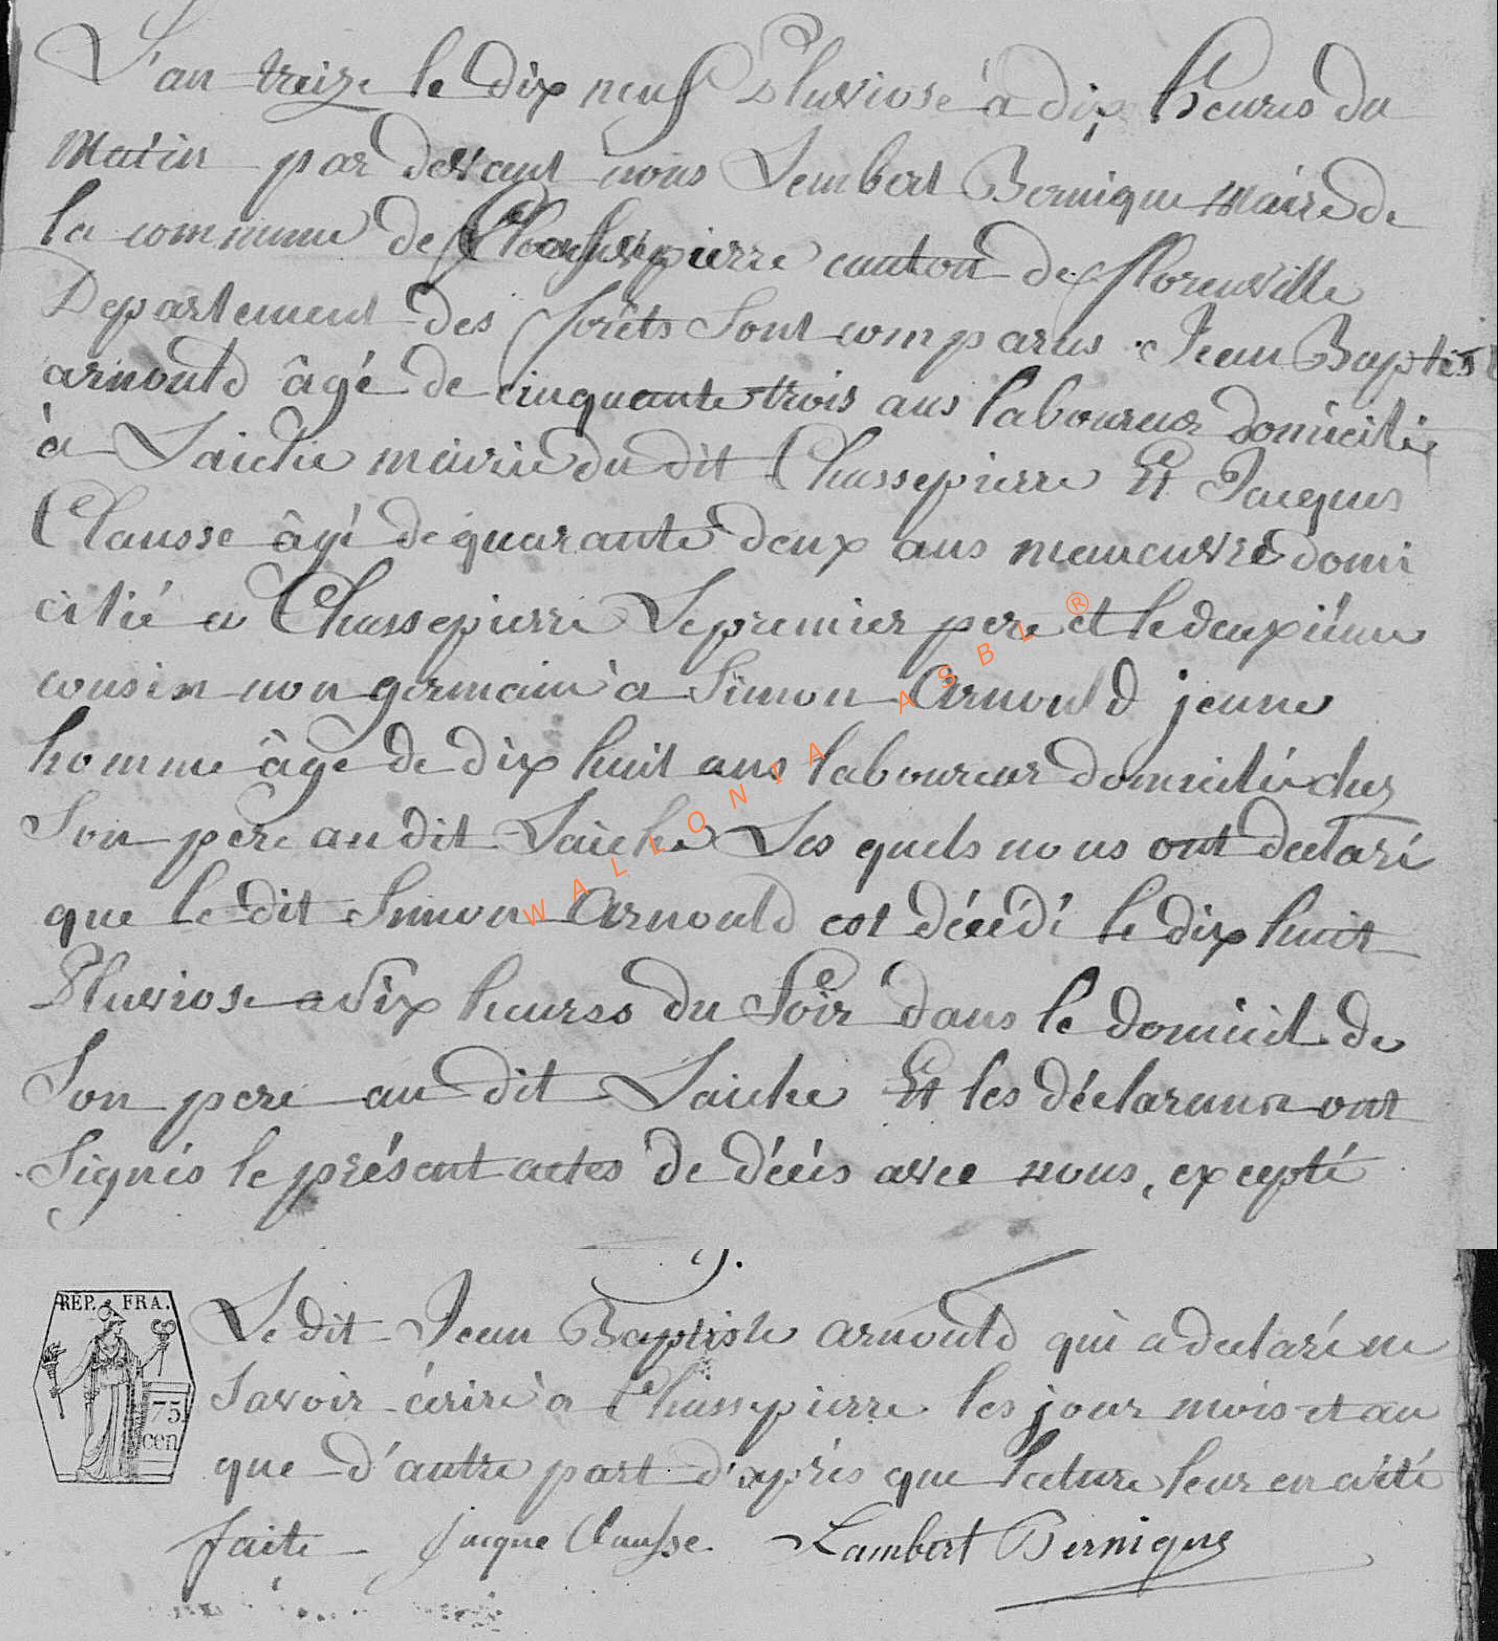 L'an treize le dix neuf Pluviose à dix heures du
matin par devant nous Lembert Bernique maire de
la commune de Chassepierre canton de florenville
Departement des forêts Sont comparus Jean Baptist
arnould âgé de cinquante trois ans laboureur domicilié
à Laiche mairie du dit Chassepierre Et Jacques
Clausse âgé de quarante deux ans maneuvre domi
cilié a Chassepierre Le premier pere et le deuxiéme
cousin non germain à Simon Arnould jeune
homme âgé de dix huit ans laboureur domicilié chez
Son pere au dit Laiche Les quels nous ont declaré
que le dit Simon Arnould est décédé le dix huit
Pluviose a Six heures du Soir dans le domicil de
Son pere au dit Laiche Et les déclarant ont
Signés le présent actes de décés avec nous, excepté
9.
REP. FRA.
Le dit Jean Baptiste arnould qui a declaré ne
Savoir écrire a Chassepierre les jour mois et an
75
cen
que d'autre part d'après que lecture leur en a été
faite Jacque Clausse Lambert Bernique
WALLONIA ASBL ®